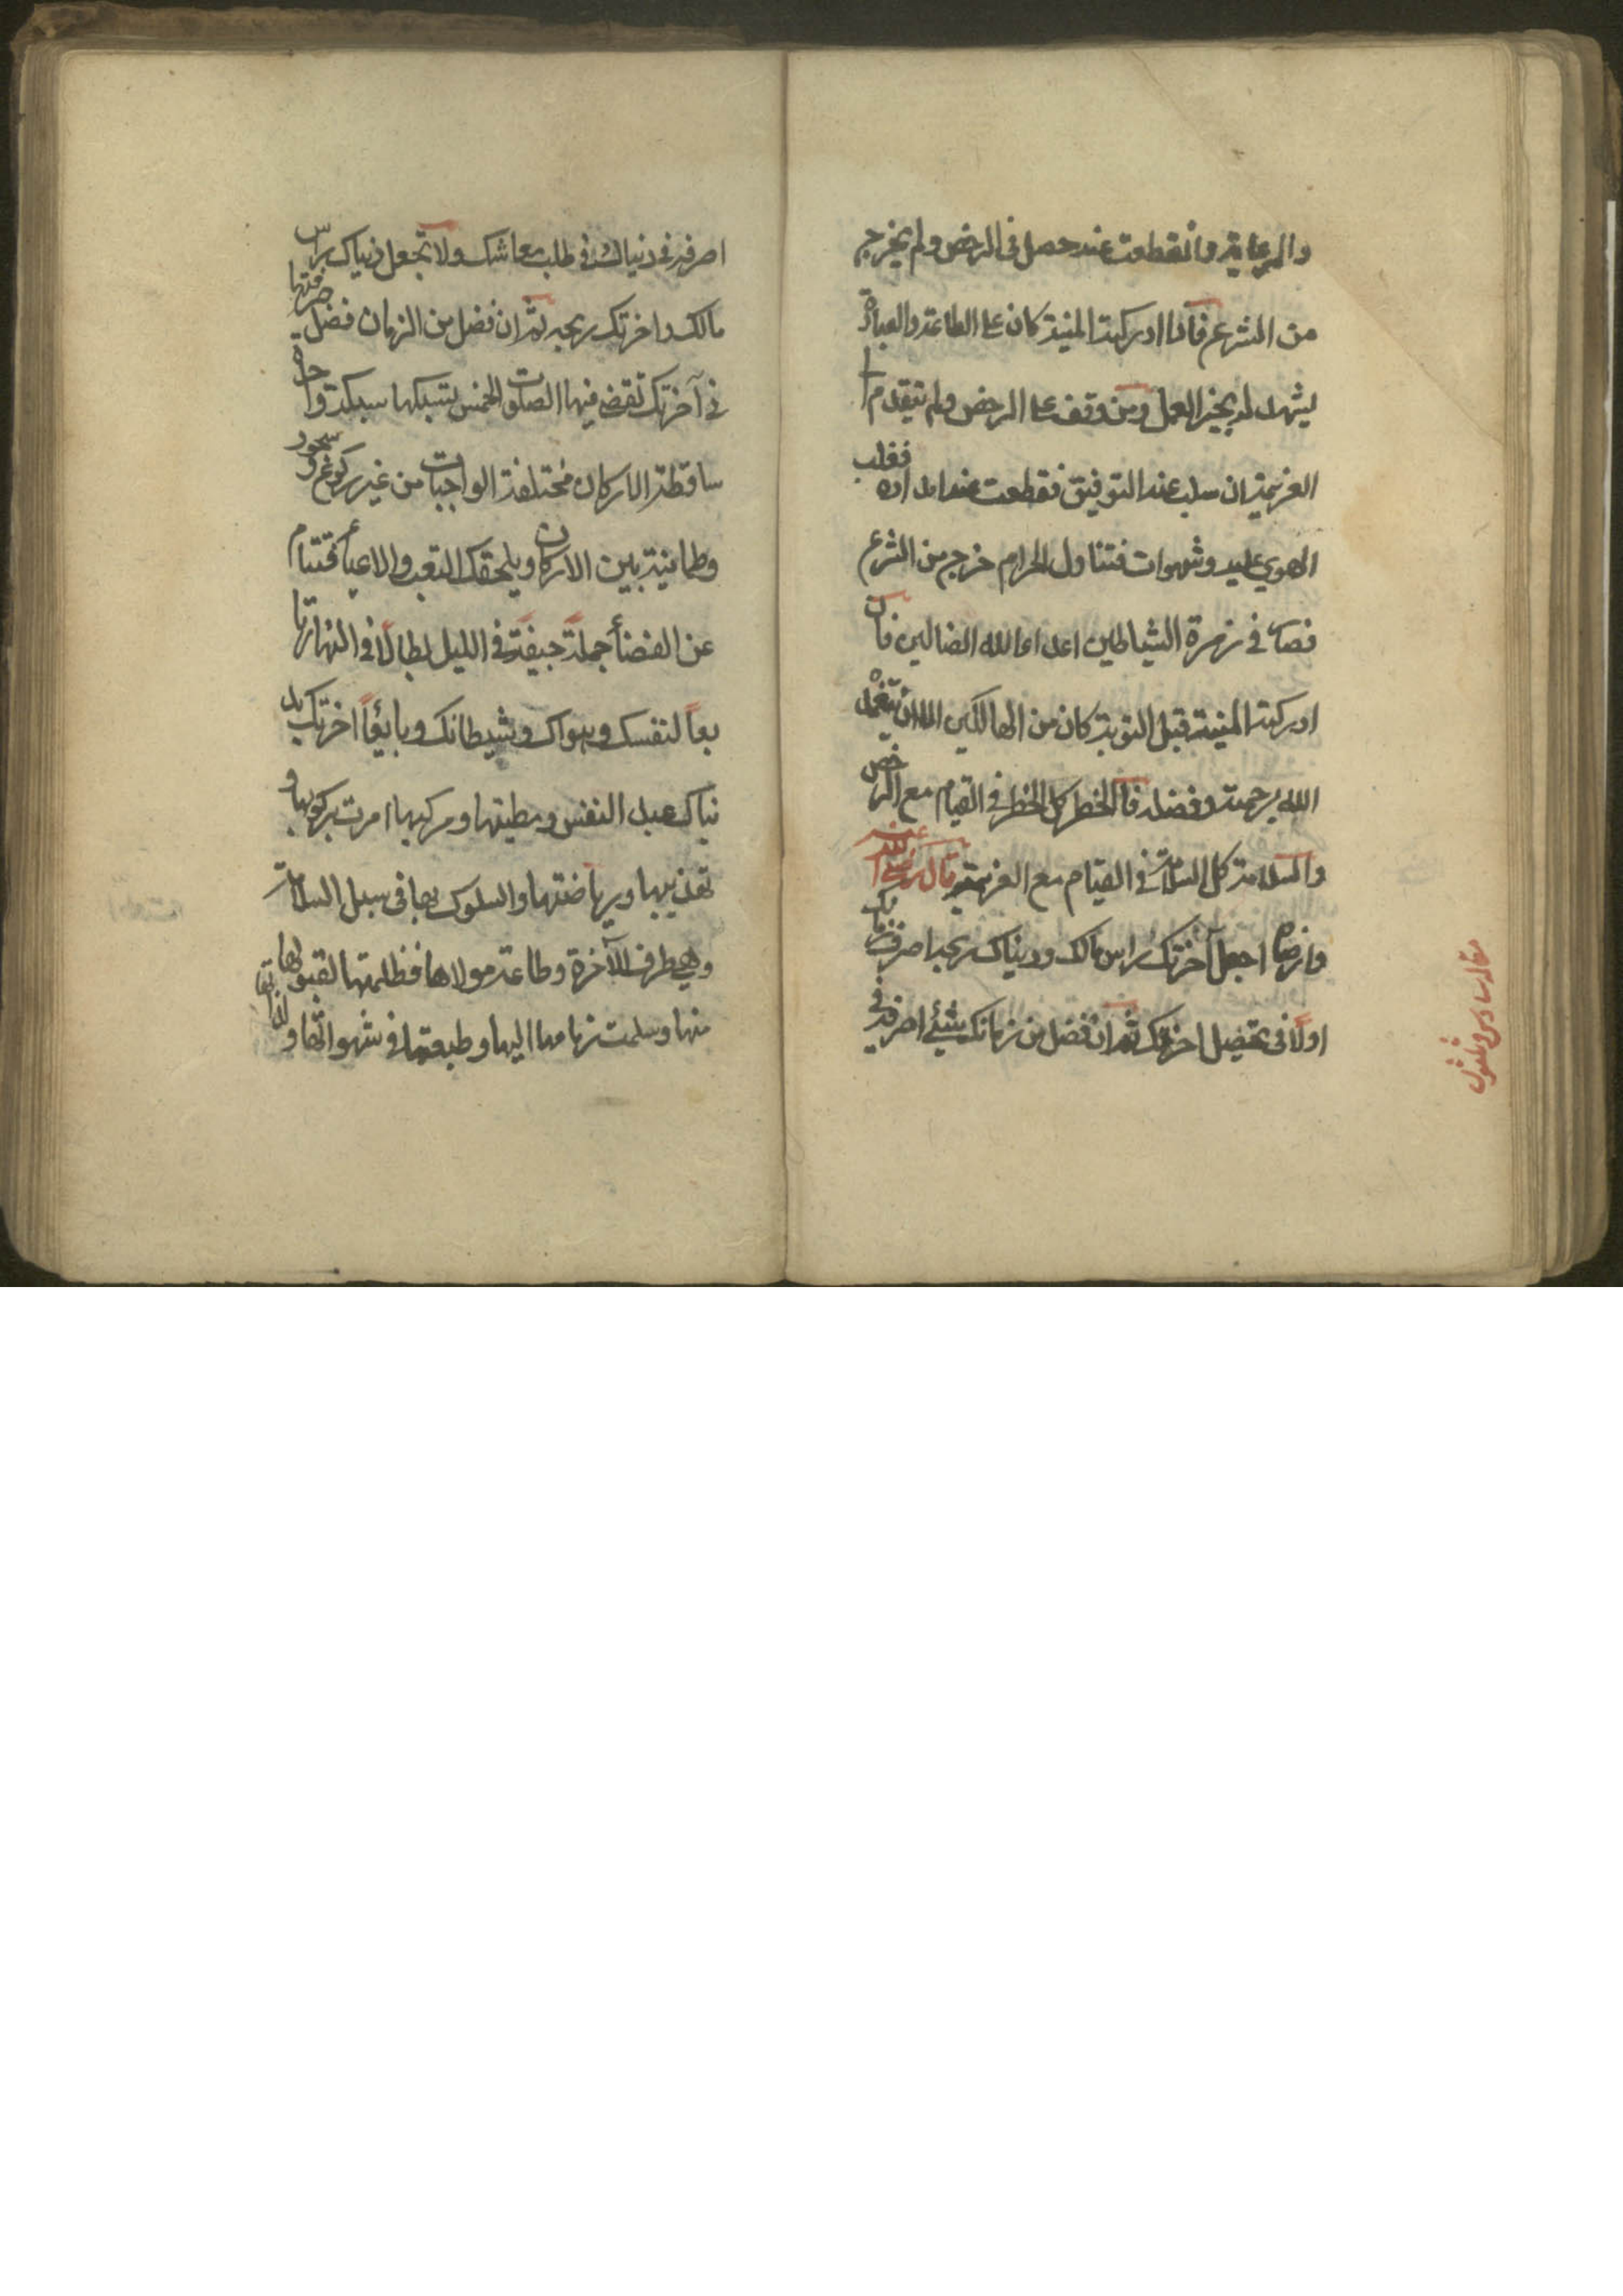 والرعاية وانقطعت عند حصل فى الرخص ولم يخرج
من الشرع فاذا ادركته المنية كان على الطاعة والعبادة
يشهد له بخير العمل ومن وقف على الرخص ولم يتقدم الى
العزيمة ان سلب عنه التوفيق فقطعت عنه امداده فغلب
الهوي عليه وشهوات فتناول الحرام خرج من الشرع
فصار فى زمرة الشياطين اعداء الله الضالين فان
ادركته المنية قبل التوبة كان من الهالكين الا ان يتغمده
الله برحمته وفضله فالخطر كل الخطر فى القيام مع الرخص
والسلامة كل السلامة فى القيام مع العزيمة قال رضي الله عنه
وارضاه اجعل آخرتك راس مالك ودنياك ربحه اصرف زمانك
اولاً فى تحصيل اخرتك ثم ان فضل من زمانك شيئ اصرفه فى
مقاله سادس وثلثون
اصرفه فى دنياك فى طلب معاشك ولا تجعل دنياك راس
مالك واخرتك ربحه ثم ان فضل من الزمان فضل صرفتها
فى آخرتك تقضى فيها الصلوت الخمس تسبكها سبكة واحدة
ساقطة الاركان مختلفة الواجبات من غير ركوع وسجود
وطمانينة بين الاركان ويلحقك التعب والاعياء فتنام
عن القضأ جملةً جيفة فى الليل بطالاً فى النهار تا
بعاً لنفسك وهواك وشيطانك وبايعاً اخرتك بد
نياك عبد النفس ومطيتها ومركبها امرت بركوبها و
تهذيبها ورياضتها والسلوك بها فى سبل السلامة
وهي طرف الآخرة وطاعة مولاها فظلمتها لقبولها
منها وسلمت زمامها اليها وطبعتها فى شهواتها و لذاتها